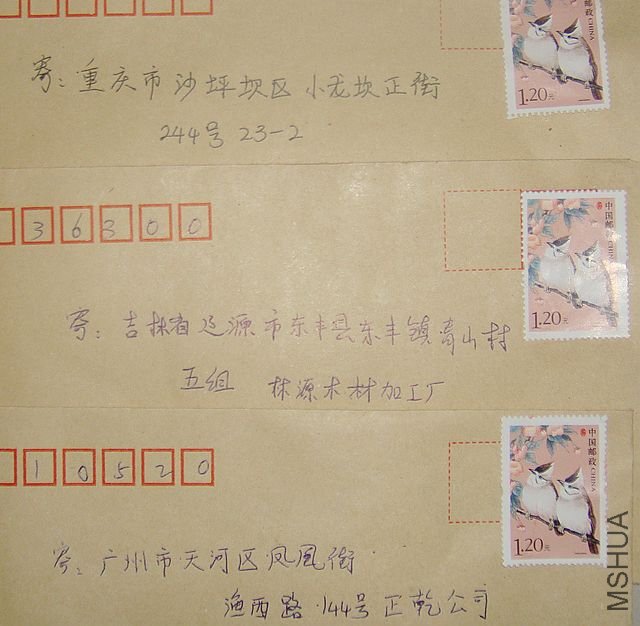 中国邮政 CHINA
1.20元
寄：重庆市沙坪坝区小龙坎正街
244号 23-2
36300
中国邮政 CHINA
1.20元
寄：吉林省辽源市东丰县东丰镇青山村
五组 林源木材加工厂
10520
中国邮政 CHINA
1.20元
寄：广州市天河区凤凰街
渔西路144号正乾公司
MSHUA